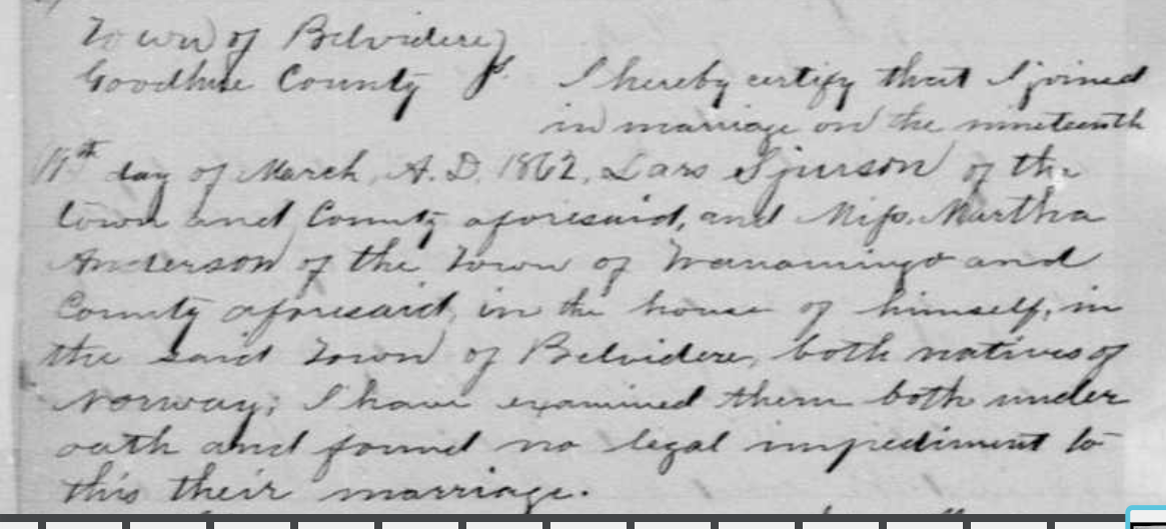 Town of Belvidere)
Goodhue County ss. I hereby certify that I joined
in marriage on the nineteenth
19th day of March, A.D. 1862, Lars Sjurson of the
town and County aforesaid, and Miss. Martha
Anderson of the Town of Wanamingo and
County aforesaid, in the house of himself, in
the said Town of Belvidere, both natives of
Norway; I have examined them both under
oath and found no legal impediment to
this their marriage.